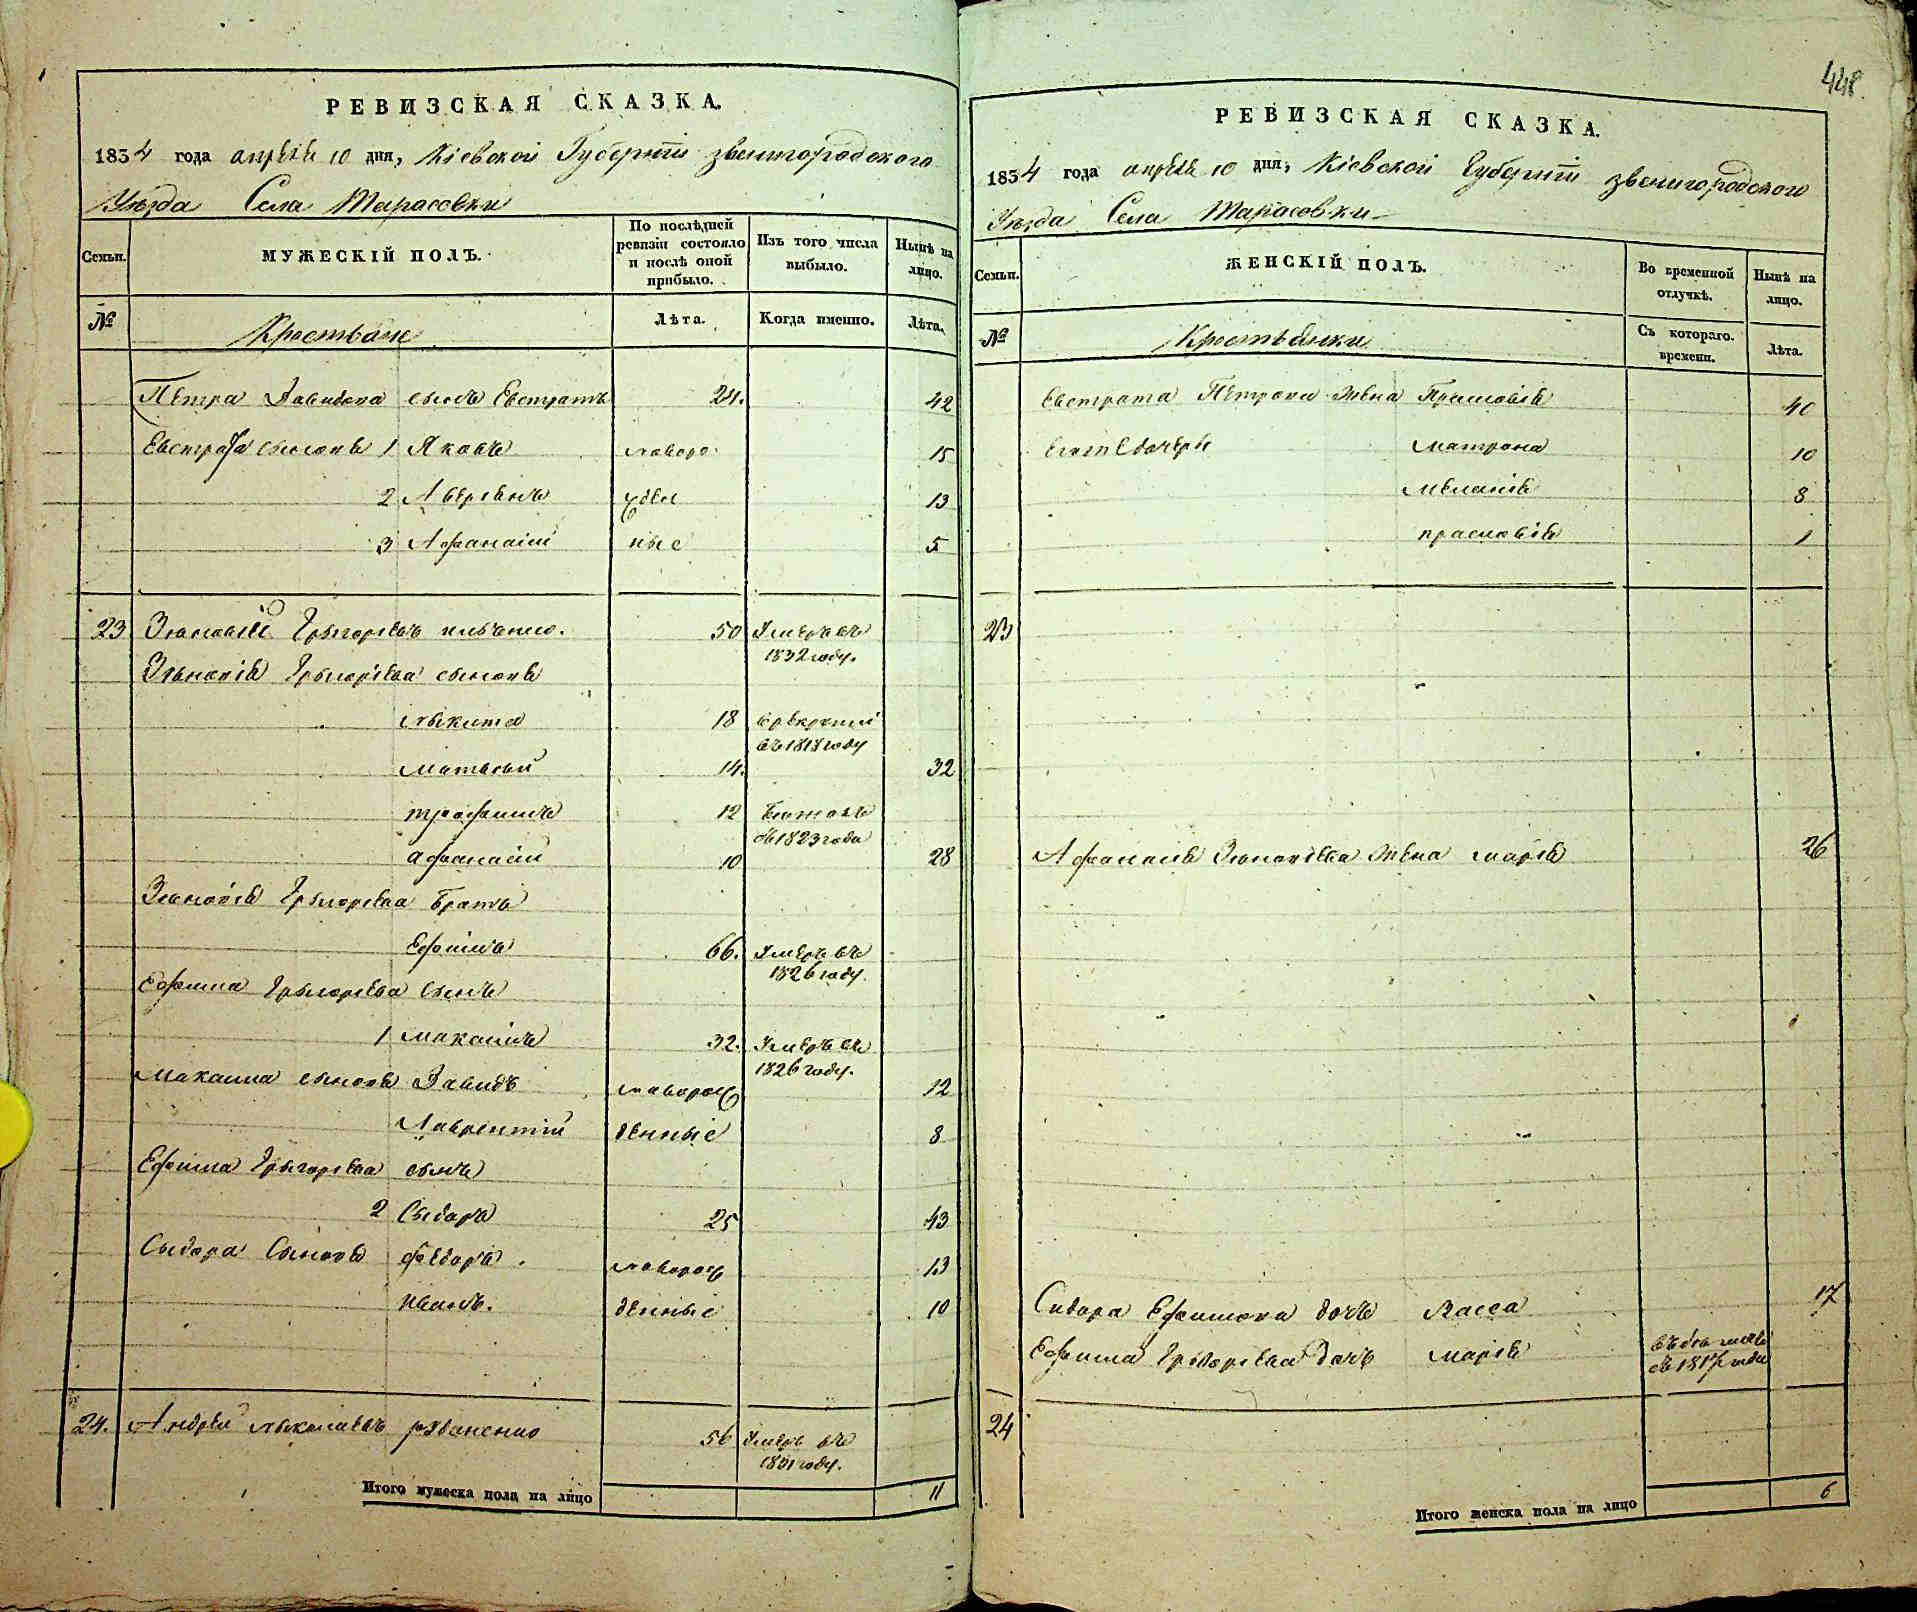 РЕВИЗСКАЯ СКАЗКА.
1834 года апреля 10 дня, Кіевской Губерніи Звенигородского
Уезда Села Тарасовки
Семьи.
МУЖЕСКІЙ ПОЛЪ.
По последней ревизіи состояло и после оной прибыло.
Изъ того числа выбыло.
Ныне на лицо.
№
Крестьяне
Лѣта.
Когда именно.
Лѣта.
Петра Давидова сынъ Евстратъ 24. 42
Евстрата сыновя 1 Яковъ новоро 15
2 Аверіянъ жден 13
3 Афанасій ные 5
23 Зѣновій Грыгорьевъ 50 Умеръ въ 1832 году.
Зѣновія Грыгорьева сыновя
Мыкита 18 въ 1818 году
Матвей 14. 32
Трофимъ 12 Бѣжалъ съ 1823 года
Афанасій 10 28
Зѣновія Грыгорьева Братъ
Ефимъ 66. Умеръ въ 1826 году.
Ефима Грыгорьева сынъ
1 Максимъ 32. Умеръ въ 1826 году.
Максима сыновя Давидъ новорож 12
Лаврентій денные 8
Ефима Грыгорьева сынъ
2 Сыдоръ 25 43
Сыдора Сыновя Федоръ. новорож 13
Иванъ. денные 10
24. Андрей Мыколаевъ 56 Умеръ въ 1831 году.
Итого мужеска пола на лицо 11
448.
РЕВИЗСКАЯ СКАЗКА.
1834 года апреля 10 дня, Кіевской Губерніи Звенигородского
Уезда Села Тарасовки
Семьи.
ЖЕНСКІЙ ПОЛЪ.
Во временной отлучкѣ.
Нынѣ на лицо.
№
Крестьянки
Съ котораго времени.
Лѣта.
Евстрата Петрова жена Прасковія 40
Матрона 10
Меланія 8
Прасковія 1
23
Афанасія Зѣновьева жена Марія 26
Сидора Ефимова дочь Васса 17
Ефима Грыгорьева дочь Марія
24
Итого женска пола на лицо 6